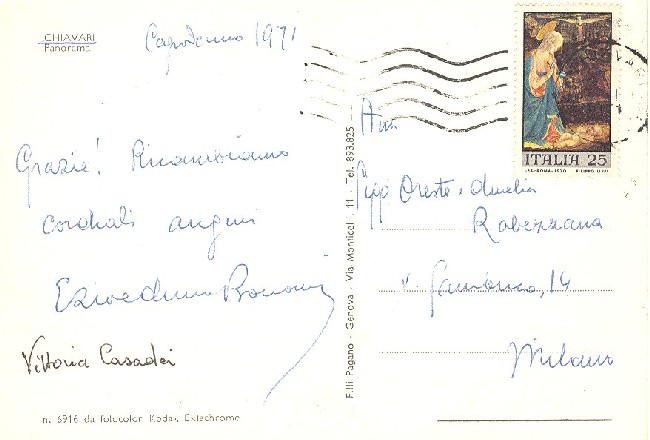 CHIAVARI
Panorama
Capodanno 1971
Grazie! Ricambiamo
cordiali auguri
Vittoria Casadei
n. 6916 da fotocolor Kodak Ektachrome
F.lli Pagano - Genova - Via Monticelli, 11 - Tel. 893.825
ITALIA 25
Oreste e Amelia
Robezzana
14
Milano